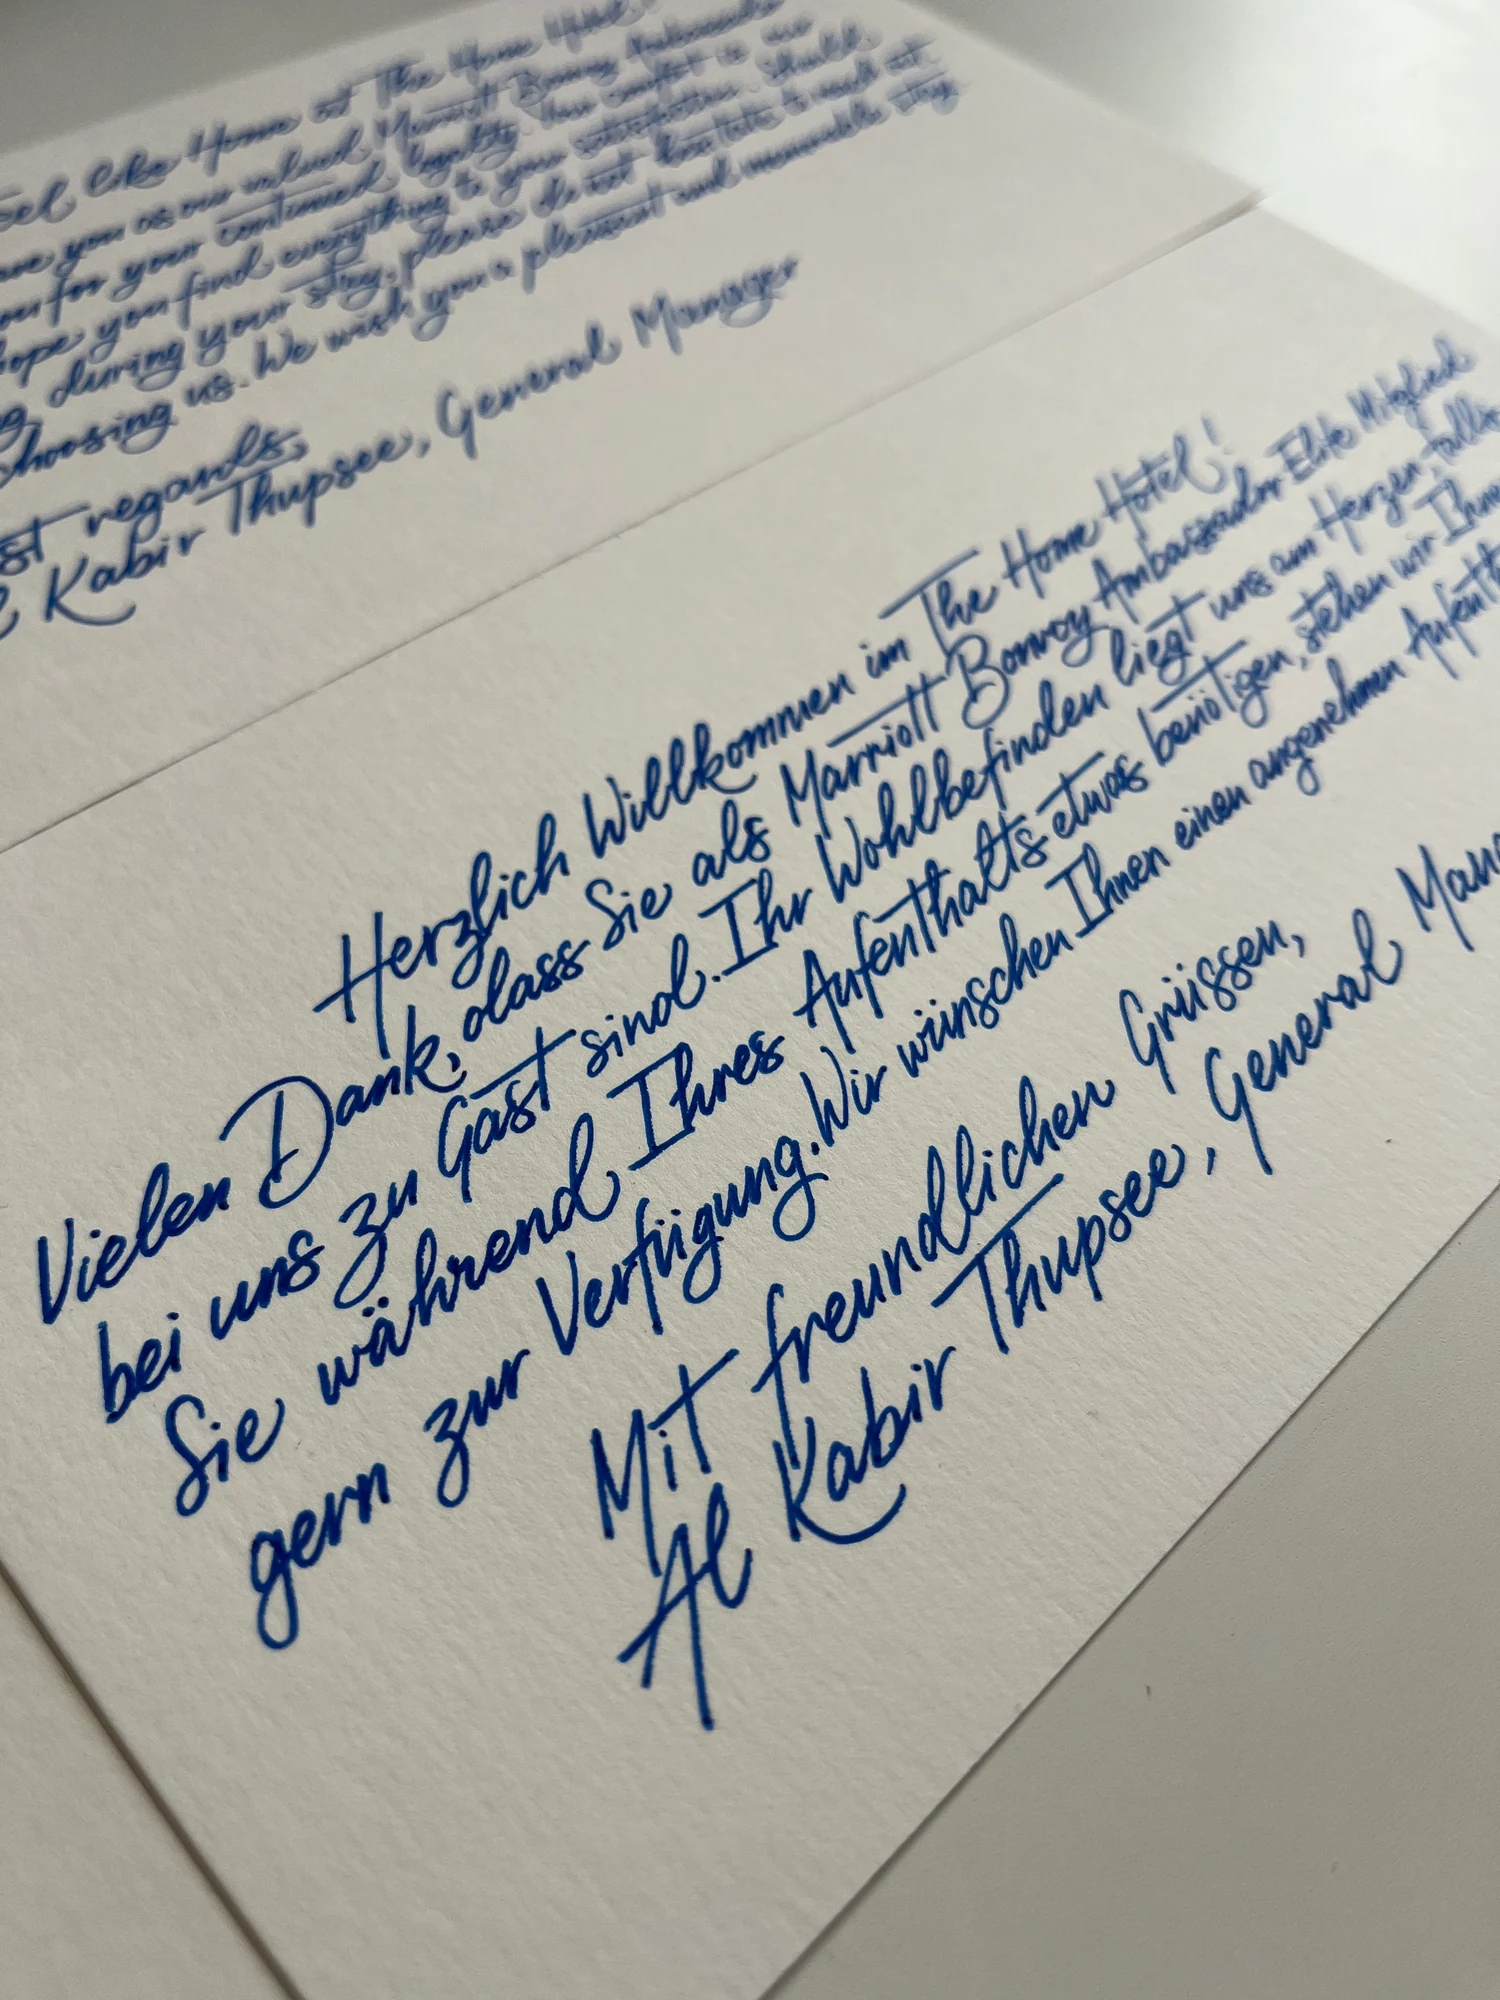 Feel like Home at The Home Hotel!
have you as our valued Marriott Bonvoy Ambassador
you for your continued loyalty. Your comfort is our
hope you find everything to your satisfaction. Should
during your stay, please do not hesitate to reach out.
choosing us. We wish you a pleasant and memorable stay
st regards,
Kabir Thupsee, General Manager
Herzlich Willkommen im The Home Hotel!
Vielen Dank, dass Sie als Marriott Bonvoy Ambassador Elite Mitglied
bei uns zu Gast sind. Ihr Wohlbefinden liegt uns am Herzen, falls
Sie während Ihres Aufenthalts etwas benötigen, stehen wir Ihnen
gern zur Verfügung. Wir wünschen Ihnen einen angenehmen Aufenth
Mit freundlichen Grüssen,
Al Kabir Thupsee, General Mana